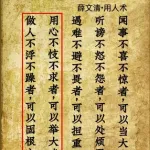 薛文清•用人术
闻事不喜不惊者，可以当大
听谤不怒不怨者，可以处烦
遇难不避不畏者，可以担重
用心不忮不求者，可以举大
做人不浮不躁者，可以固根